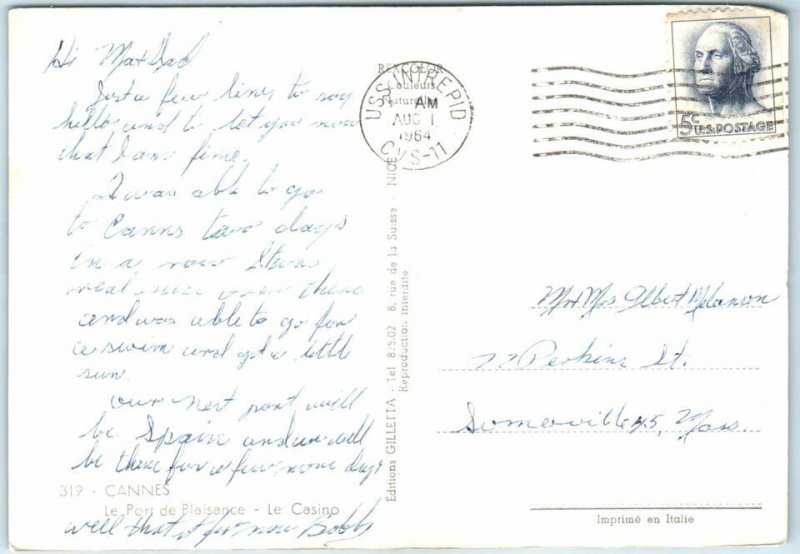 Hi Mat Dad
Just a few lines to say
hello and to let you now
that I am fine.
I was able to go
to Canns two days
in a row
over there
and was able to go for
a swim and got a little
sun.
our next port will
be Spain and we will
be there for a few more days
well that it for now Bobby
319 - CANNES
Le Port de Plaisance - Le Casino
REXCOLOR
Couleurs
Naturelles
Éditions GILLETTA - Tel 85.02 8, rue de la Suisse - NICE
Reproduction interdite
USS INTREPID
AM
AUG 1
1964
CVS-11
5c U.S. POSTAGE
Mr + Mrs Albert Melanson
77 Perkins St.
Somerville 45, Mass.
Imprimé en Italie